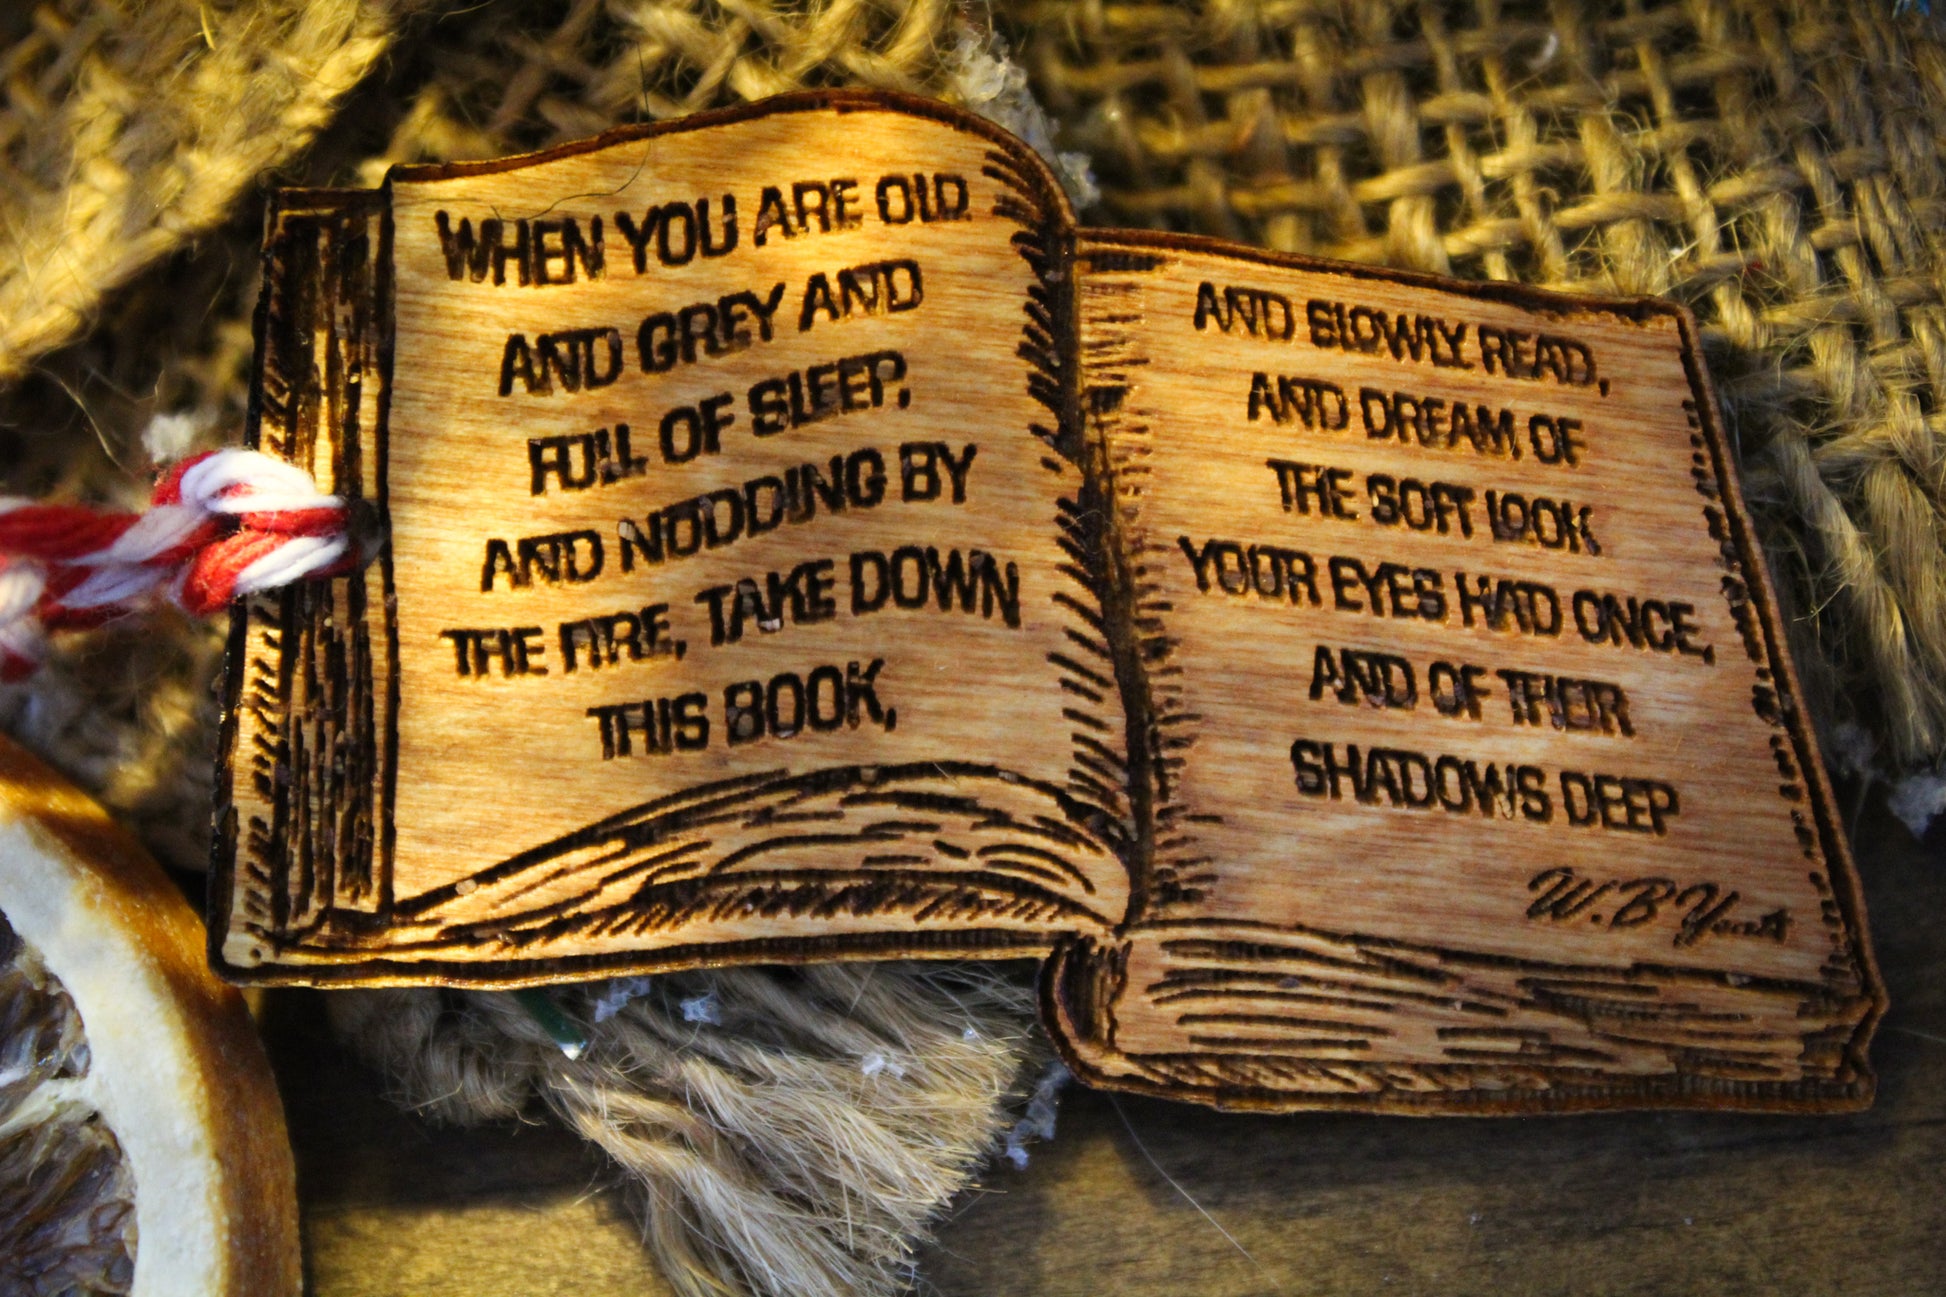 WHEN YOU ARE OLD
AND GREY AND
FULL OF SLEEP,
AND NODDING BY
THE FIRE, TAKE DOWN
THIS BOOK,
AND SLOWLY READ,
AND DREAM OF
THE SOFT LOOK
YOUR EYES HAD ONCE,
AND OF THEIR
SHADOWS DEEP
W.B Yeats